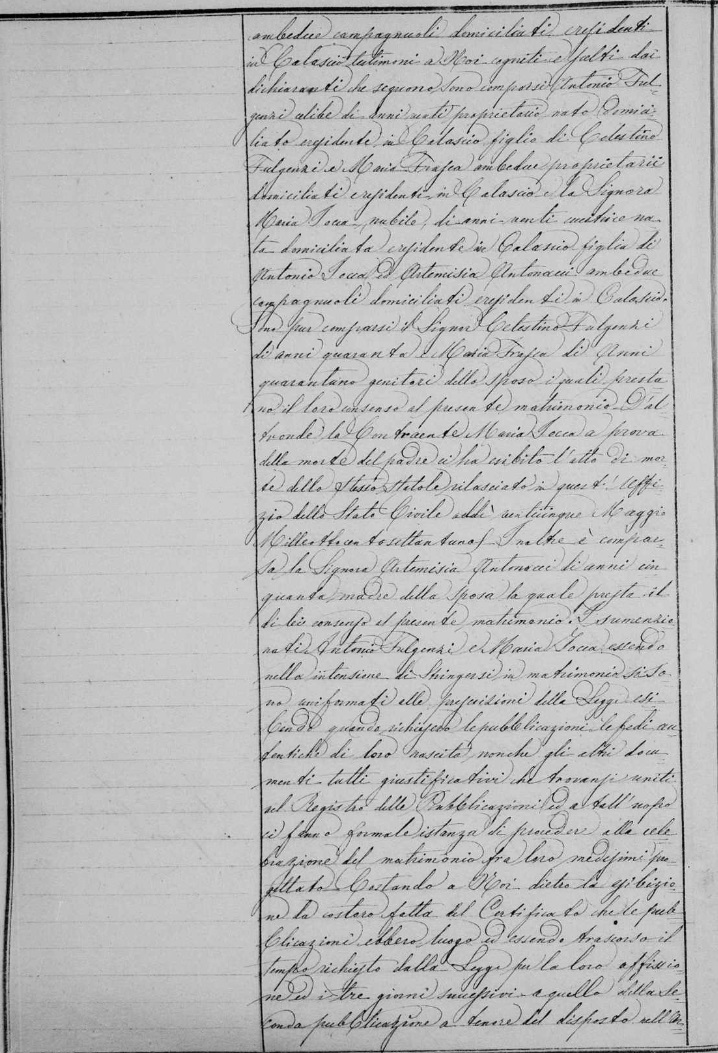 ambedue campagnuoli domiciliati e residenti
in Calascio testimoni a Noi cogniti e scelti dai
dichiaranti che seguono sono comparsi Antonio Ful-
genzi celibe di anni venti proprietario nato domici-
liato e residente in Calascio figlio di Celestino
Fulgenzi e Maria Frasca ambedue proprietarii
domiciliati e residenti in Calascio e la Signora
Maria Jocca nubile, di anni venti cucitrice na-
ta domiciliata e residente in Calascio figlia di
Antonio Jocca ed Artemisia Antonacci ambedue
campagnuoli domiciliati e residenti in Calascio.
Sono pur comparsi il Signor Celestino Fulgenzi
di anni quaranta e Maria Frasca di Anni
quarantuno genitori dello sposo i quali presta
no il loro consenso al presente matrimonio. D'al
tronde la Contraente Maria Jocca a prova
della morte del padre ci ha esibito l'atto di mor
te dello stesso rilasciato in quest' Uffi-
zio dello Stato Civile addì venticinque Maggio
Milleottocentosettantuno. Inoltre è compar-
sa la Signora Artemisia Antonacci di anni cin
quanta madre della sposa la quale presta il
di lei consenso al presente matrimonio. I sumenzio
nati Antonio Fulgenzi e Maria Jocca essendo
nella intensione di stringersi in matrimonio si so
no uniformati alle prescrizioni della Legge esi-
bendo quando richiesero le pubblicazioni le fedi au
tentiche di loro nascita, nonchè gli altri docu-
menti tutti giustificativi che trovansi uniti
nel Registro delle Pubblicazioni ed a tall'uopo
ci fanno formale istanza di procedere alla cele
brazione del matrimonio fra loro medesimi pro
gettato. Costando a Noi dietro la esibizio-
ne da costoro fatta del Certificato che le pub
blicazioni ebbero luogo ed essendo trascorso il
tempo richiesto dalla Legge per la loro affissio-
ne ed i tre giorni successivi a quello della se-
conda pubblicazione a tenore del disposto nell'Ar-